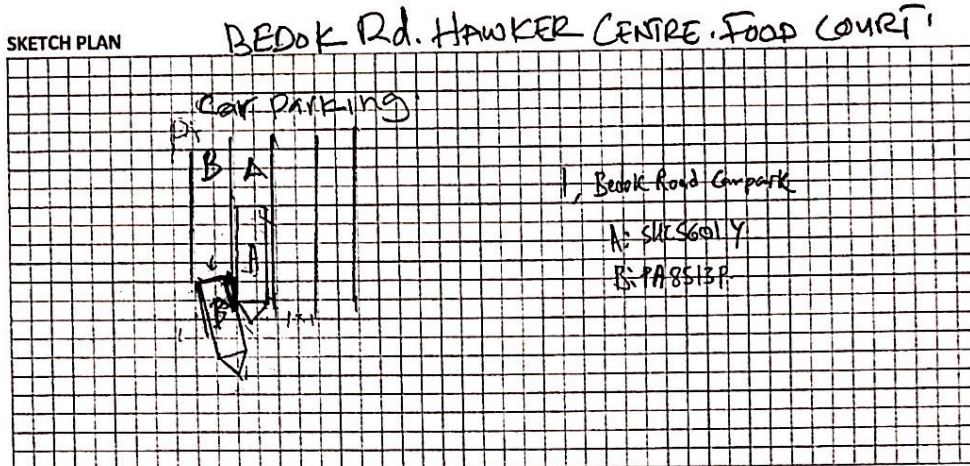 SKETCH PLAN
BEDOK Rd. HAWKER CENTRE. FOOD COURT.
Car parking
B A
A
B
1, Bedok Road Carpark
A: SHC5601Y
B: PA8513P